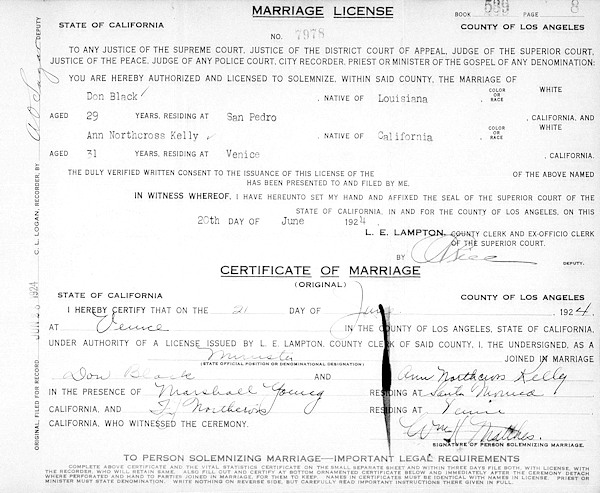 MARRIAGE LICENSE
BOOK 599 PAGE 8
STATE OF CALIFORNIA
NO. 7978
COUNTY OF LOS ANGELES
TO ANY JUSTICE OF THE SUPREME COURT, JUSTICE OF THE DISTRICT COURT OF APPEAL, JUDGE OF THE SUPERIOR COURT,
JUSTICE OF THE PEACE, JUDGE OF ANY POLICE COURT, CITY RECORDER, PRIEST OR MINISTER OF THE GOSPEL OF ANY DENOMINATION:
YOU ARE HEREBY AUTHORIZED AND LICENSED TO SOLEMNIZE, WITHIN SAID COUNTY, THE MARRIAGE OF
Don Black , NATIVE OF Louisiana , COLOR OR RACE WHITE
AGED 29 YEARS, RESIDING AT San Pedro , CALIFORNIA, AND
Ann Northcross Kelly , NATIVE OF California , COLOR OR RACE WHITE
AGED 31 YEARS, RESIDING AT Venice , CALIFORNIA.
THE DULY VERIFIED WRITTEN CONSENT TO THE ISSUANCE OF THIS LICENSE OF THE OF THE ABOVE NAMED
HAS BEEN PRESENTED TO AND FILED BY ME.
IN WITNESS WHEREOF, I HAVE HEREUNTO SET MY HAND AND AFFIXED THE SEAL OF THE SUPERIOR COURT OF THE
STATE OF CALIFORNIA, IN AND FOR THE COUNTY OF LOS ANGELES, ON THIS
20th DAY OF June 1924
L. E. LAMPTON, COUNTY CLERK AND EX-OFFICIO CLERK
OF THE SUPERIOR COURT.
BY
DEPUTY.
CERTIFICATE OF MARRIAGE
(ORIGINAL)
STATE OF CALIFORNIA
COUNTY OF LOS ANGELES
I HEREBY CERTIFY THAT ON THE 21 DAY OF June , 1924.
AT Venice IN THE COUNTY OF LOS ANGELES, STATE OF CALIFORNIA,
UNDER AUTHORITY OF A LICENSE ISSUED BY L. E. LAMPTON, COUNTY CLERK OF SAID COUNTY, I, THE UNDERSIGNED, AS A
Minister JOINED IN MARRIAGE
(STATE OFFICIAL POSITION OR DENOMINATIONAL DESIGNATION)
Don Black AND Ann Northcross Kelley
IN THE PRESENCE OF Marshall Young RESIDING AT Santa Monica
CALIFORNIA, AND Northcross RESIDING AT Venice
CALIFORNIA, WHO WITNESSED THE CEREMONY.
Matthes.
SIGNATURE OF PERSON SOLEMNIZING MARRIAGE.
TO PERSON SOLEMNIZING MARRIAGE—IMPORTANT LEGAL REQUIREMENTS
COMPLETE ABOVE CERTIFICATE AND THE VITAL STATISTICS CERTIFICATE ON THE SMALL SEPARATE SHEET AND WITHIN THREE DAYS FILE BOTH, WITH LICENSE, WITH
THE RECORDER, WHO WILL RETAIN SAME. ALSO FILL OUT AND CERTIFY AT BOTTOM ORNAMENTED CERTIFICATE BELOW AND IMMEDIATELY AFTER THE CEREMONY DETACH
WHERE PERFORATED AND HAND TO PARTIES JOINED IN MARRIAGE, FOR THEM TO KEEP. NAMES IN CERTIFICATES MUST BE IDENTICAL WITH NAMES IN LICENSE. PRIEST OR
MINISTER MUST STATE DENOMINATION. WRITE NOTHING ON REVERSE SIDE, BUT CAREFULLY READ IMPORTANT INSTRUCTIONS THERE GIVEN IN FULL.
ORIGINAL FILED FOR RECORD 1924 C. L. LOGAN, RECORDER, BY DEPUTY